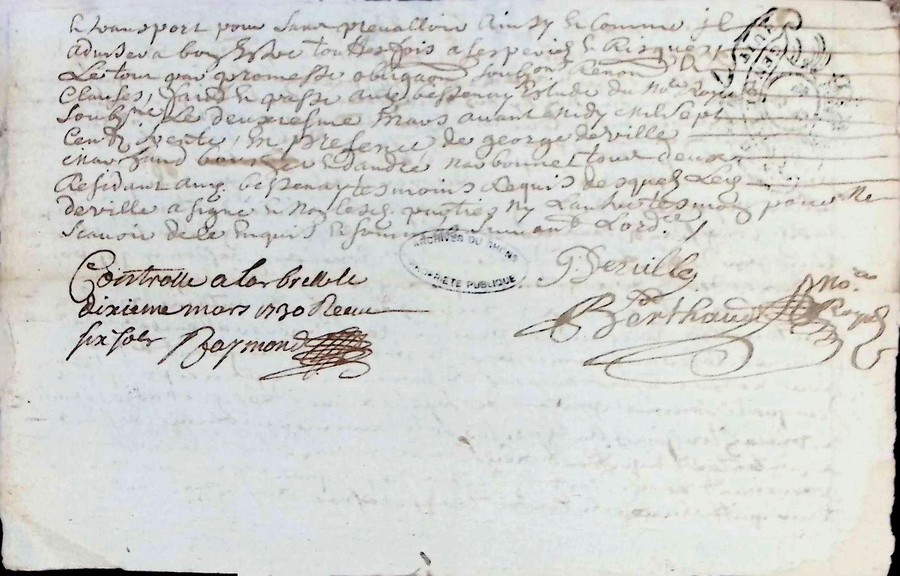 le transport pour sans prevalloir ainsy et comme il
advisera bon estre touttesfois a ses perielz et Risques
Le tout par promesse obligaon soubzon Renon et
Clauses, fait et passé audt bessenay Estude du Nore Royal
soubsné Le deuxiesme mars avant midy mil sept
Centz trente, En presence de george deville
marchand et andré narbonnet tous deux
Residant aud. bessenay tesmoins Requis desquelz Led
deville a signé et non lesd. parties Ny L'autre tesmoin pour ne
scavoir de ce Enquis et sommé suivant L'ord.ce
ARCHIVES DU RHONE
PROPRIETE PUBLIQUE
G. Deville
Controllé a Larbresle le
dixieme mars 1730 Receu
six sols Raymond
Berthaud Nore Royal